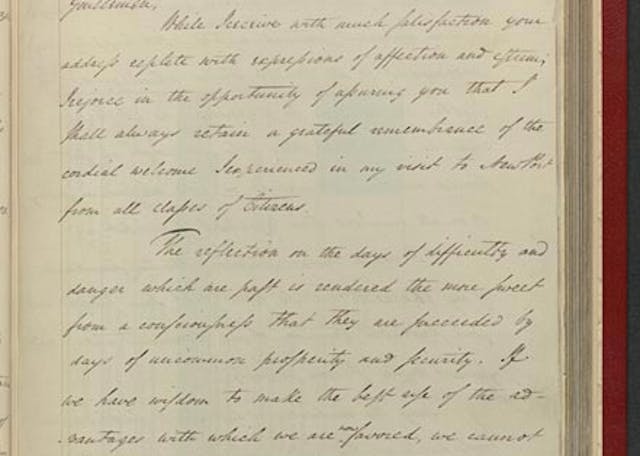 Gentlemen,
While I receive with much satisfaction your
address replete with expressions of affection and esteem;
I rejoice in the opportunity of assuring you that I
shall always retain a grateful remembrance of the
cordial welcome I experienced in my visit to NewPort
from all classes of Citizens.
The reflection on the days of difficulty and
danger which are past is rendered the more sweet
from a consciousness that they are succeeded by
days of uncommon prosperity and security. If
we have wisdom to make the best use of the ad-
vantages with which we are now favored, we cannot